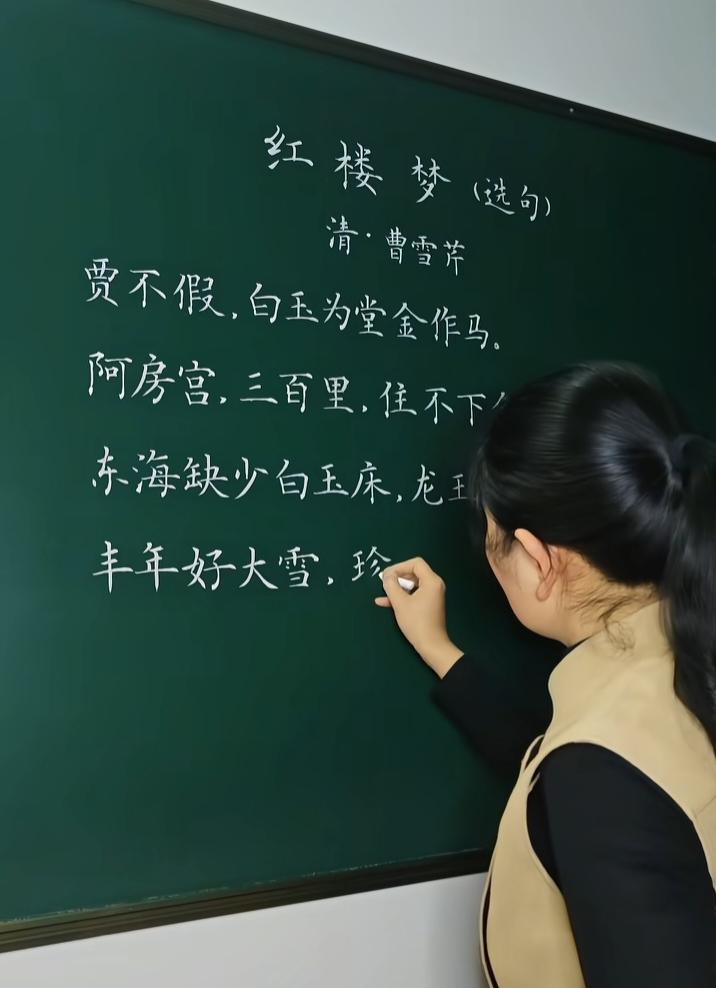 红楼梦(选句)
清·曹雪芹
贾不假,白玉为堂金作马。
阿房宫,三百里,住不下
东海缺少白玉床,龙王
丰年好大雪,珍